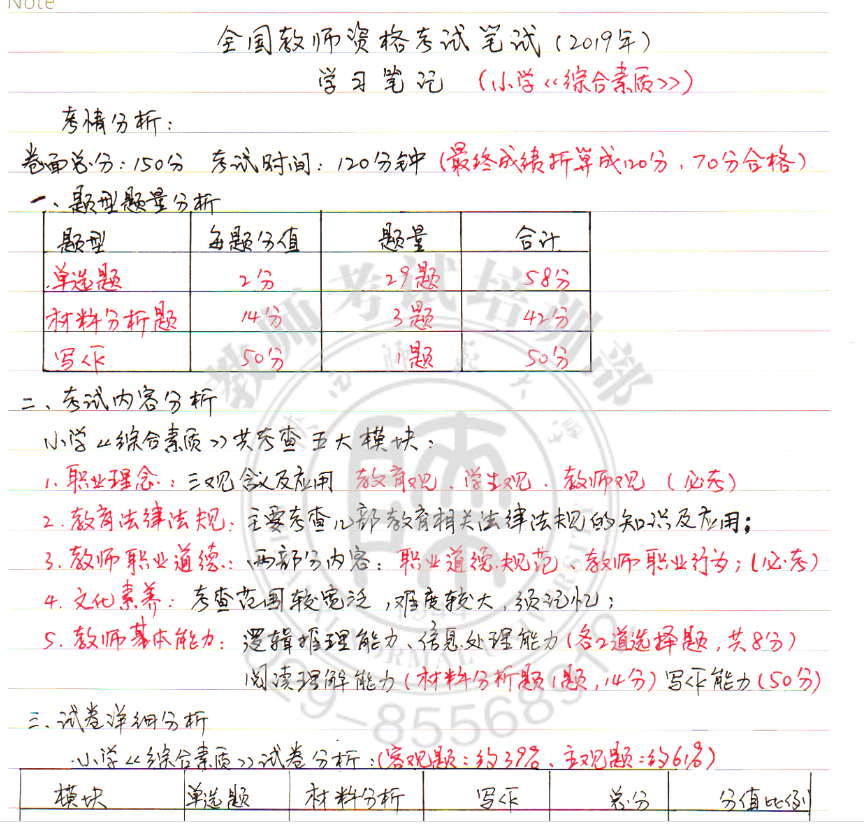 Note
全国教师资格考试笔试(2019年)
学习笔记 (小学《综合素质》)
考情分析:
卷面总分:150分 考试时间:120分钟(最终成绩折算成120分,70分合格)
一、题型题量分析
题型 每题分值 题量 合计
单选题 2分 29题 58分
材料分析题 14分 3题 42分
写作 50分 1题 50分
二、考试内容分析
小学《综合素质》共考查五大模块:
1.职业理念:三观含义及应用 教育观、学生观、教师观 (必考)
2.教育法律法规:主要考查几部教育相关法律法规的知识及应用;
3.教师职业道德:两部分内容:职业道德规范、教师职业行为;(必考)
4.文化素养:考查范围较宽泛,难度较大,须记忆;
5.教师基本能力:逻辑推理能力、信息处理能力(各2道选择题,共8分)
阅读理解能力(材料分析题1题,14分)写作能力(50分)
三、试卷详细分析
小学《综合素质》试卷分析:(客观题:约39%、主观题:约61%)
模块 单选题 材料分析 写作 总分 分值比例
教师考试培训部